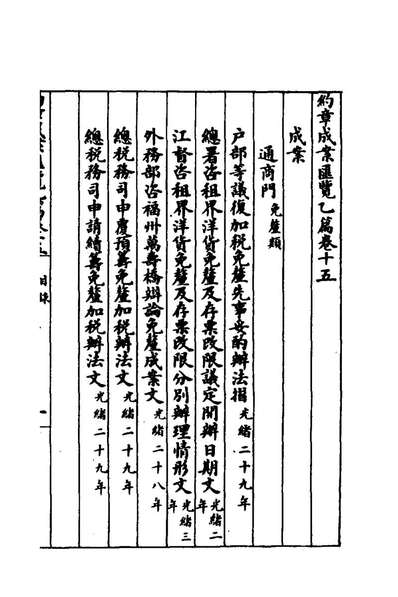 約章成案匯覽乙篇卷十五
成案
通商門 免釐類
戶部等議復加税免釐先事妥酌辦法摺 光緒二十九年
總署咨租界洋貨免釐及存票改限議定開辦日期文 光緒二年
江督咨租界洋貨免釐及存票改限分別辦理情形文 光緒三年
外務部咨福州萬壽橋辯論免釐成案文 光緒二十八年
總税務司申覆預籌免釐加税辦法文 光緒二十九年
總税務司申請續籌免釐加税辦法文 光緒二十九年
目錄
一